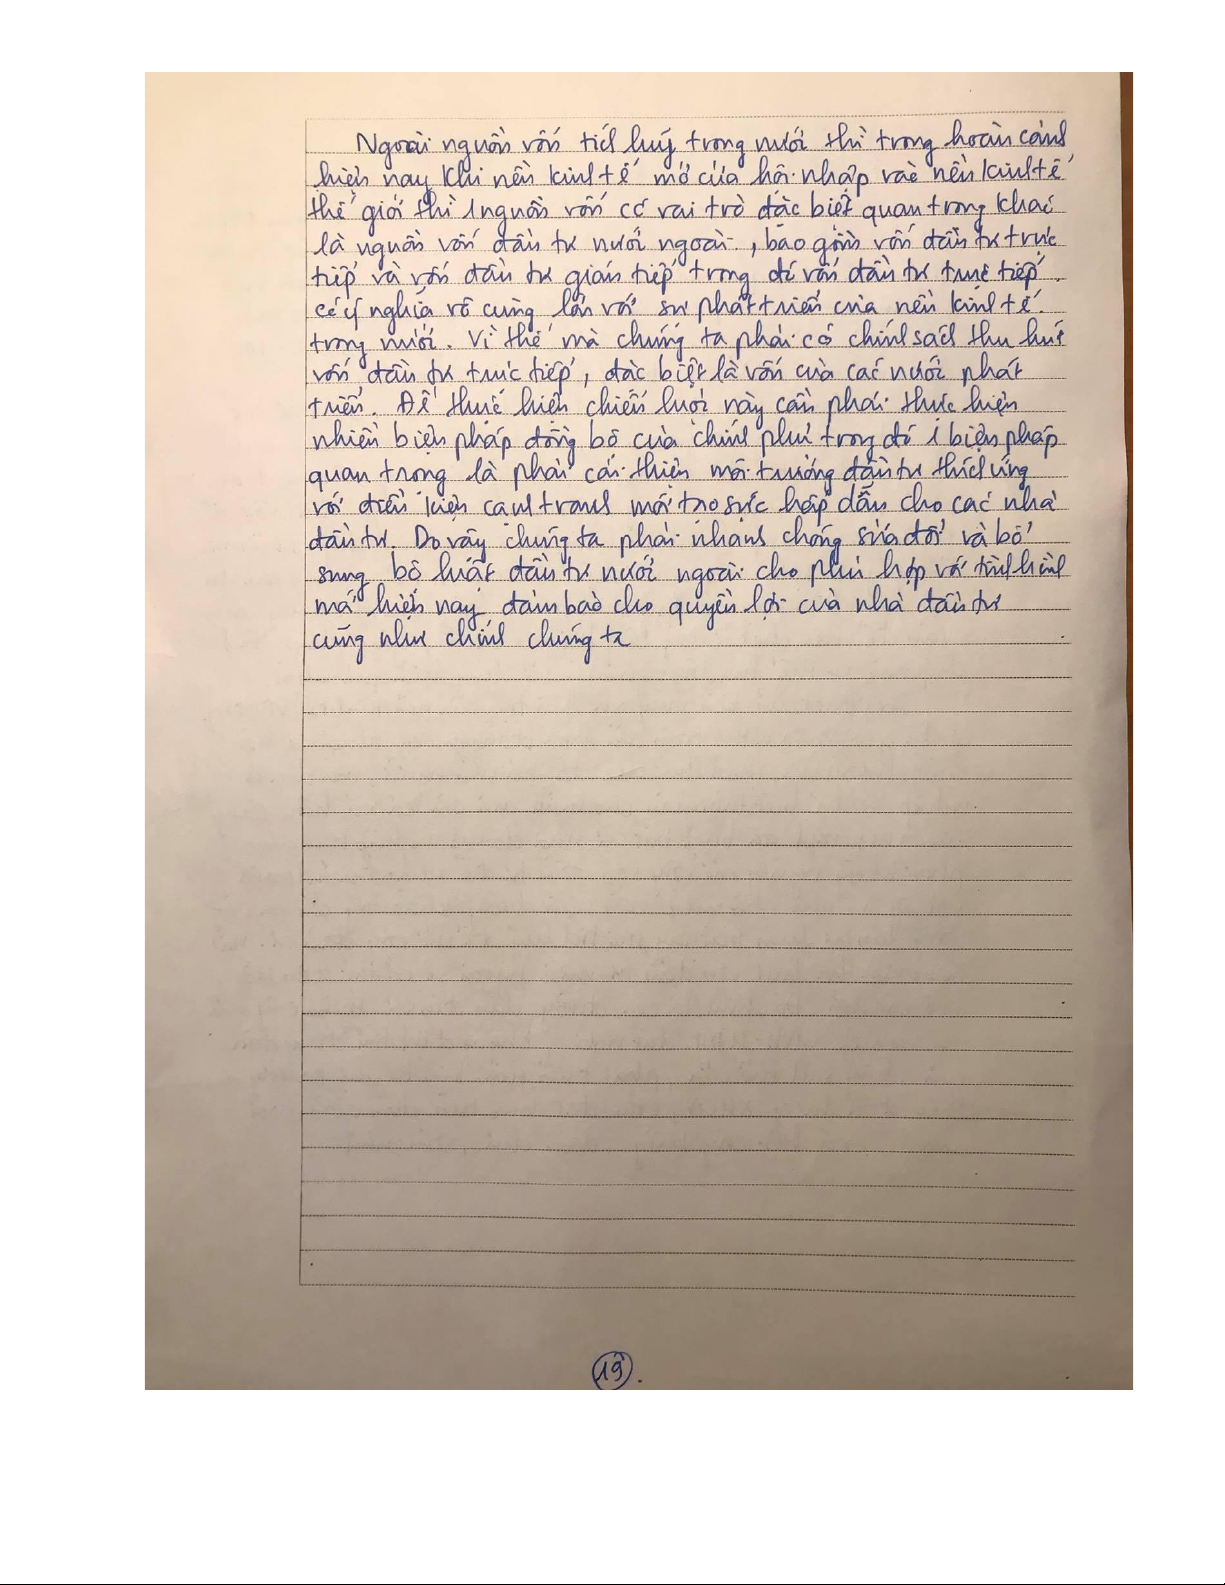 Ngoài nguồn vốn tích luỹ trong nước thì trong hoàn cảnh
hiện nay khi nền kinh tế mở cửa hội nhập vào nền kinh tế
thế giới thì 1 nguồn vốn có vai trò đặc biệt quan trọng khác
là nguồn vốn đầu tư nước ngoài, bao gồm vốn đầu tư trực
tiếp và vốn đầu tư gián tiếp trong đó vốn đầu tư trực tiếp
có ý nghĩa vô cùng lớn với sự phát triển của nền kinh tế
trong nước. Vì thế mà chúng ta phải có chính sách thu hút
vốn đầu tư trực tiếp, đặc biệt là vốn của các nước phát
triển. Để thực hiện chiến lược này cần phải thực hiện
nhiều biện pháp đồng bộ của chính phủ trong đó 1 biện pháp
quan trọng là phải cải thiện môi trường đầu tư thích ứng
với điều kiện cạnh tranh mới tạo sức hấp dẫn cho các nhà
đầu tư. Do vậy chúng ta phải nhanh chóng sửa đổi và bổ
sung bộ luật đầu tư nước ngoài cho phù hợp với tình hình
mới hiện nay đảm bảo cho quyền lợi của nhà đầu tư
cũng như chính chúng ta
19.